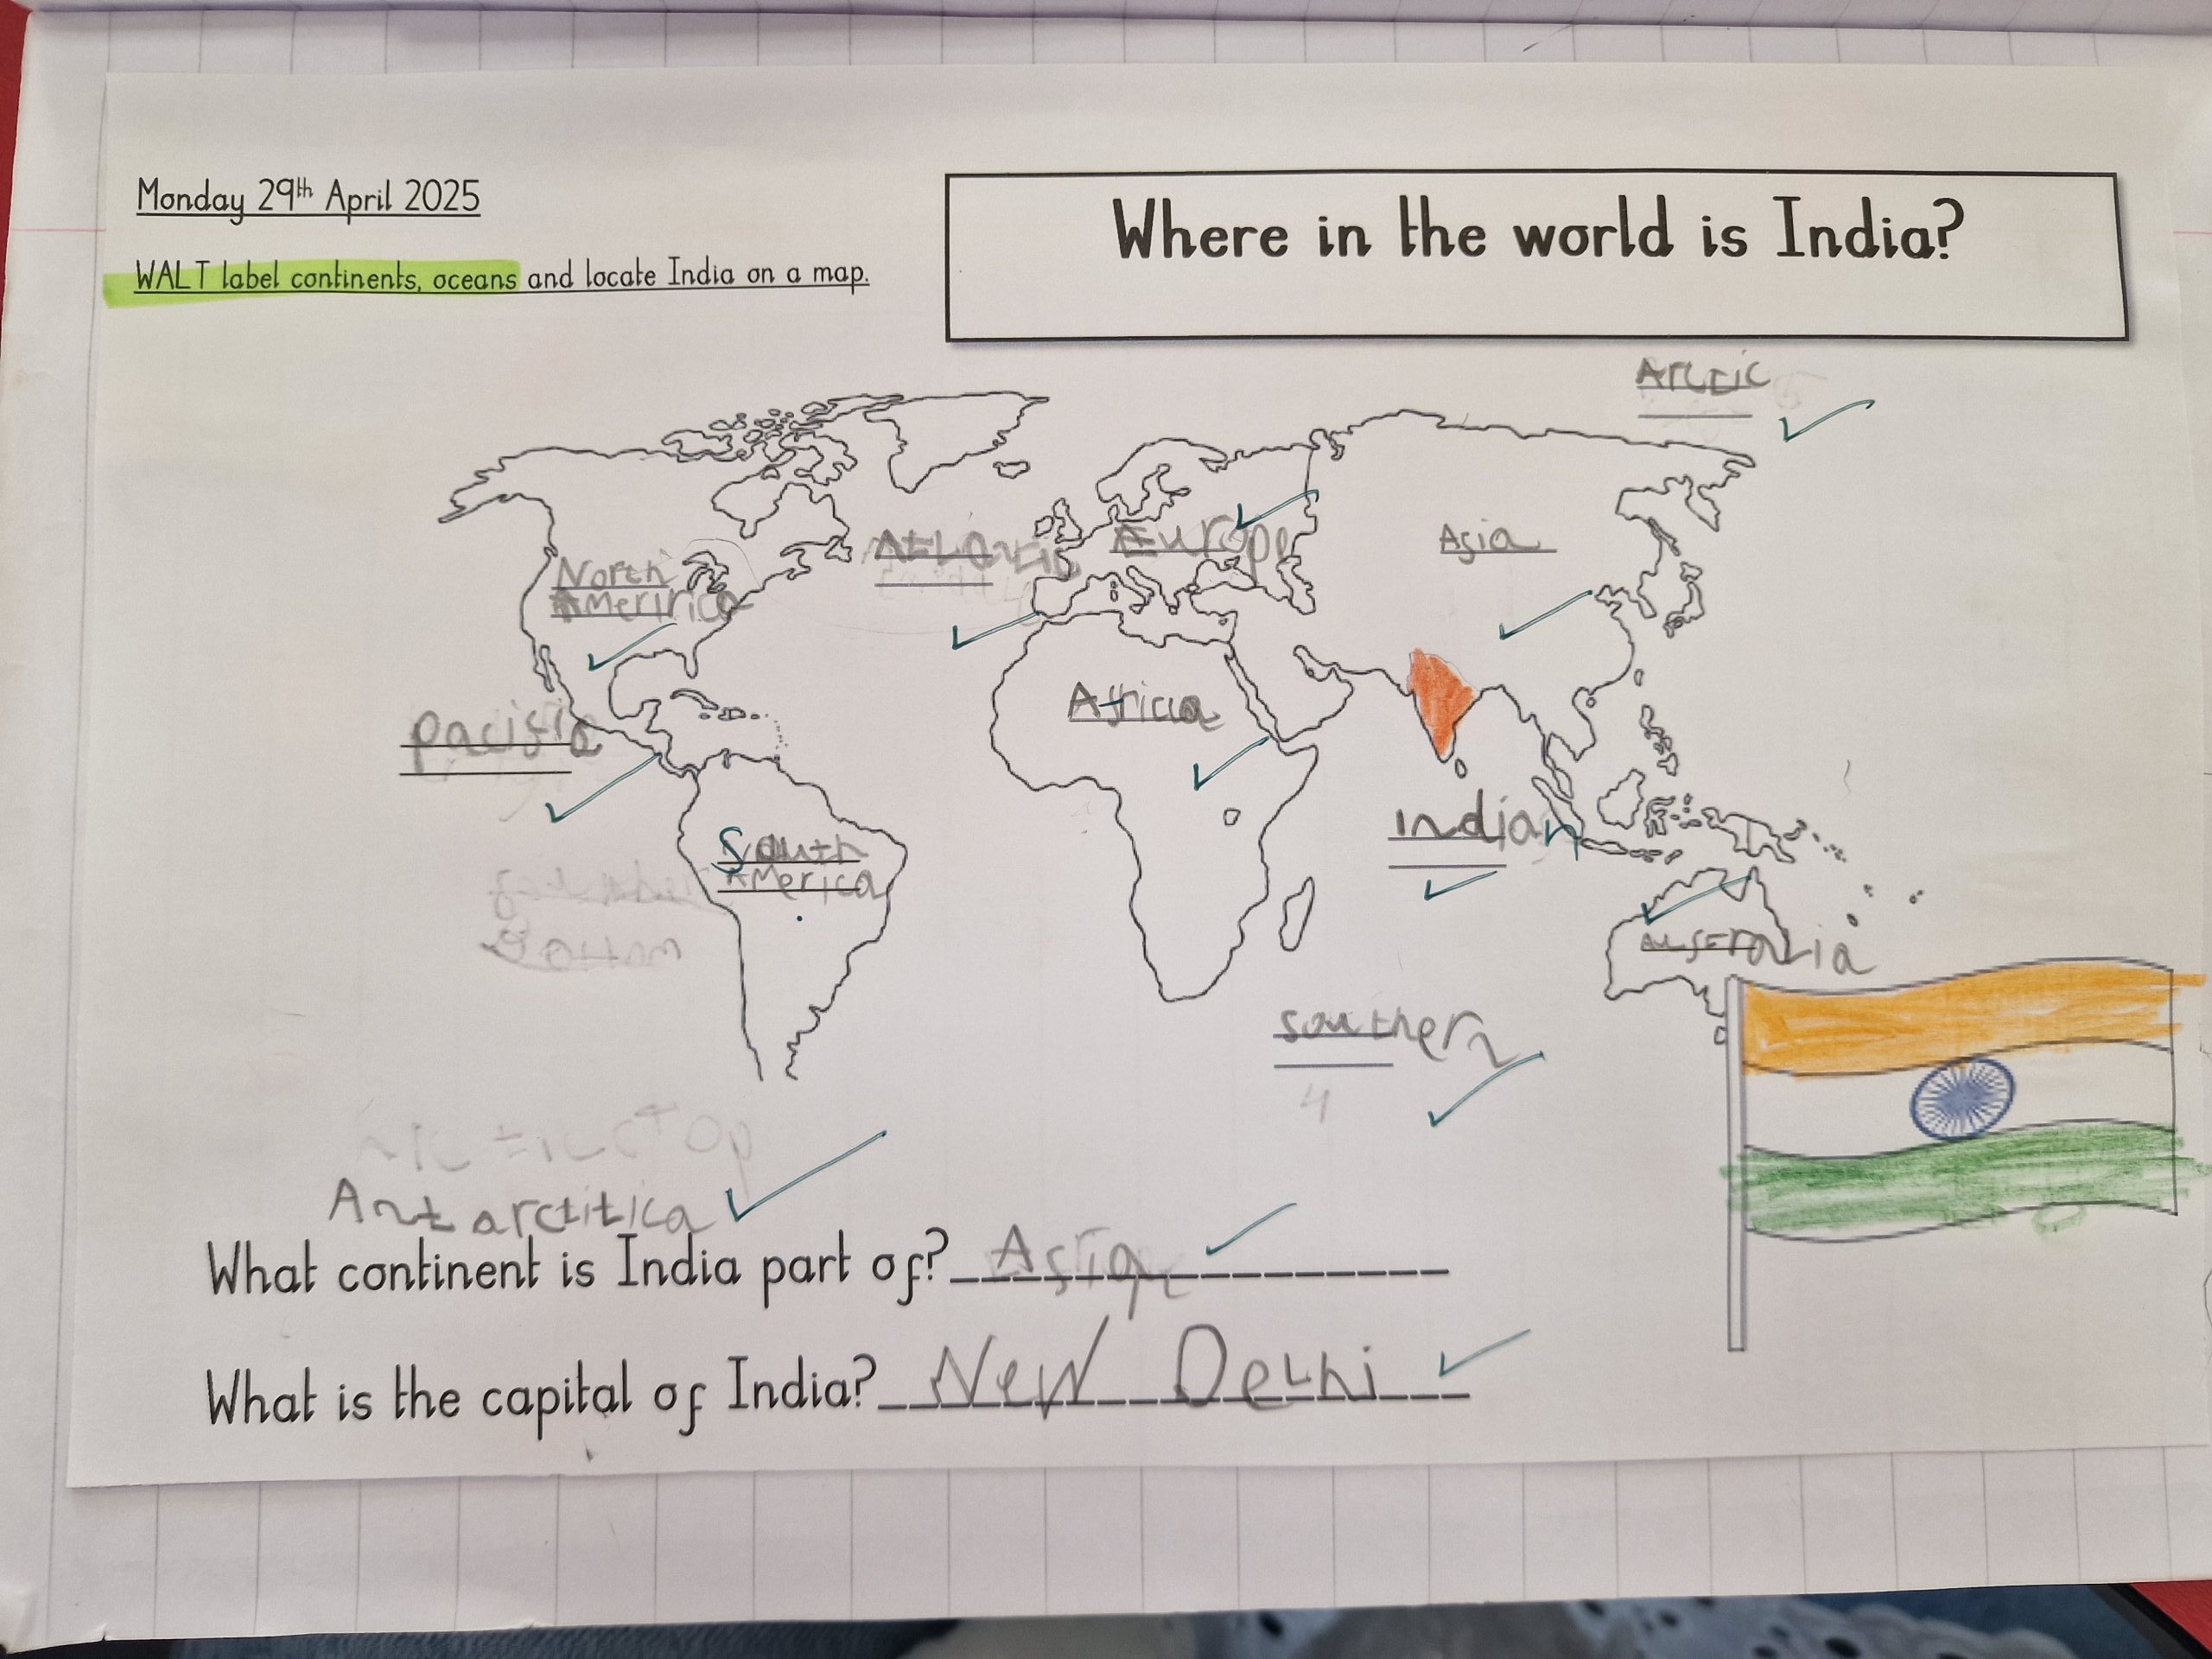 Monday 29th April 2025
WALT label continents, oceans and locate India on a map.
Where in the world is India?
Arctic
Atlantic
Europe
Asia
North
Ameririca
Africia
pacific
Indian
South
America
Australia
southern
4
Antarctitica
What continent is India part of? Asia
What is the capital of India? New Delhi